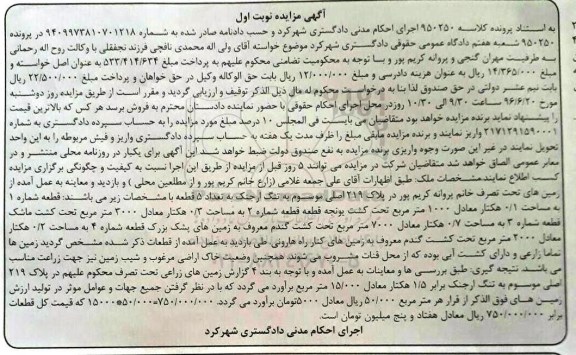 آگهی مزایده نوبت اول
به استناد پرونده کلاسه ۹۵۰۲۵۰ اجرای احکام مدنی دادگستری شهرکرد و حسب دادنامه صادر شده به شماره ۹۴۰۹۹۷۳۸۱۰۷۰۱۲۱۸ در پرونده
۹۵۰۲۵۰ شعبه هفتم دادگاه عمومی حقوقی دادگستری شهرکرد موضوع خواسته آقای ولی اله محمدی نافچی فرزند نجفقلی با وکالت روح اله رحمانی
به طرفیت مهران گنجی و پروانه کریم پور و بسا توجه به محکومیت تضامنی محکوم علیهم به پرداخت مبلغ ۵۳۳/۴۱۴/۶۳۴ ریال به عنوان اصل خواسته و
مبلغ ۱۴/۳۶۵/۰۰۰ ریال به عنوان هزینه دادرسی و مبلغ ۱۲/۰۰۰/۰۰۰ ریال بابت حق الوکاله وکیل در حق خواهان و پرداخت مبلغ ۲۲/۵۰۰/۰۰۰ ریال
بابت نیم عشر دولتی در حق صندوق لذا بنا به درخواست محکوم له مال ذیل الذکر توقیف و ارزیابی گردید و مقرر است از طریق مزایده روز دوشنبه
مورخ ۹۶/۶/۲۰ ساعت ۹/۳۰ الی ۱۰/۳۰ روز در محل اجرای احکام حقوقی با حضور نماینده دادستان محترم به فروش برسد هر کس که بالاترین قیمت
را پیشنهاد نماید برنده مزایده خواهد بود متقاضیان می بایست فی المجلس ۱۰ درصد مبلغ مورد مزایده را به حساب سپرده دادگستری به شماره
۲۱۷۱۲۹۱۵۹۰۰۰۱ واریز نمایند و برنده مزایده مابقی مبلغ را ظرف مدت یک هفته به حساب سپرده دادگستری واریز و فیش مربوطه را به این واحد
تحویل نمایند در غیر این صورت وجوه واریزی برنده مزایده به نفع صندوق دولت ضبط خواهد شد این آگهی برای یکبار در روزنامه محلی منتشر و در
معابر عمومی الصاق خواهد شد متقاضیان شرکت در مزایده می توانند ۵ روز قبل از مزایده از طریق این اجرا نسبت به کیفیت و چگونگی برگزاری مزایده
کسب اطلاع نمایند مشخصات ملک: طبق اظهارات آقای علی جمعه غلامی (زارع خانم کریم پور و از مطلعین محلی) و بازدید و معاینه به عمل آمده از
زمین های تحت تصرف خانم پروانه کریم پور در پلاک ۲۱۹ اصلی موسوم به تنگ ارجنک به تعداد ۵ قطعه با مشخصات زیر می باشند: قطعه شماره ۱
به مساحت ۰/۱ هکتار معادل ۱۰۰۰ متر مربع تحت کشت یونجه قطعه شماره ۲ به مساحت ۰/۳ هکتار معادل ۳۰۰۰ متر مربع تحت کشت ماشک
قطعه شماره ۳ به مساحت ۰/۷ هکتار معادل ۷۰۰۰ متر مربع تحت کشت گندم معروف به زمین های پشک بزرگ قطعه شماره ۴ به مساحت ۰/۲ هکتار
معادل ۲۰۰۰ متر مربع تحت کشت گندم معروف به زمین های کنار راه هارونی. طی بازدید به عمل آمده از قطعات ذکر شده مشخص گردید زمین ها
تماما زارعی و دارای کشت آبی بوده که از محل قنات مشروب می شوند. همچنین وضعیت خاک اراضی مرغوب و شیب زمین نیز جهت زراعت مناسب
می باشد. نتیجه گیری: طبق بررسی ها و معاینات به عمل آمده و با توجه به بند ۴ گزارش زمین های زراعی تحت تصرف محکوم علیهم در پلاک ۲۱۹
اصلی موسوم به تنگ ارجنک برابر ۱/۵ هکتار معادل ۱۵/۰۰۰ متر مربع برآورد می گردد که با در نظر گرفتن جمیع جهات و عوامل موثر در تولید ارزش
زمین های فوق الذکر از قرار هر متر مربع ۵۰/۰۰۰ ریال معادل ۵۰۰۰ تومان برآورد می گردد. ۷۵۰/۰۰۰/۰۰۰=۵۰/۰۰۰*۱۵۰۰۰ که قیمت کل قطعات
برابر ۷۵۰/۰۰۰/۰۰۰ ریال معادل هفتاد و پنج میلیون تومان است.
اجرای احکام مدنی دادگستری شهرکرد